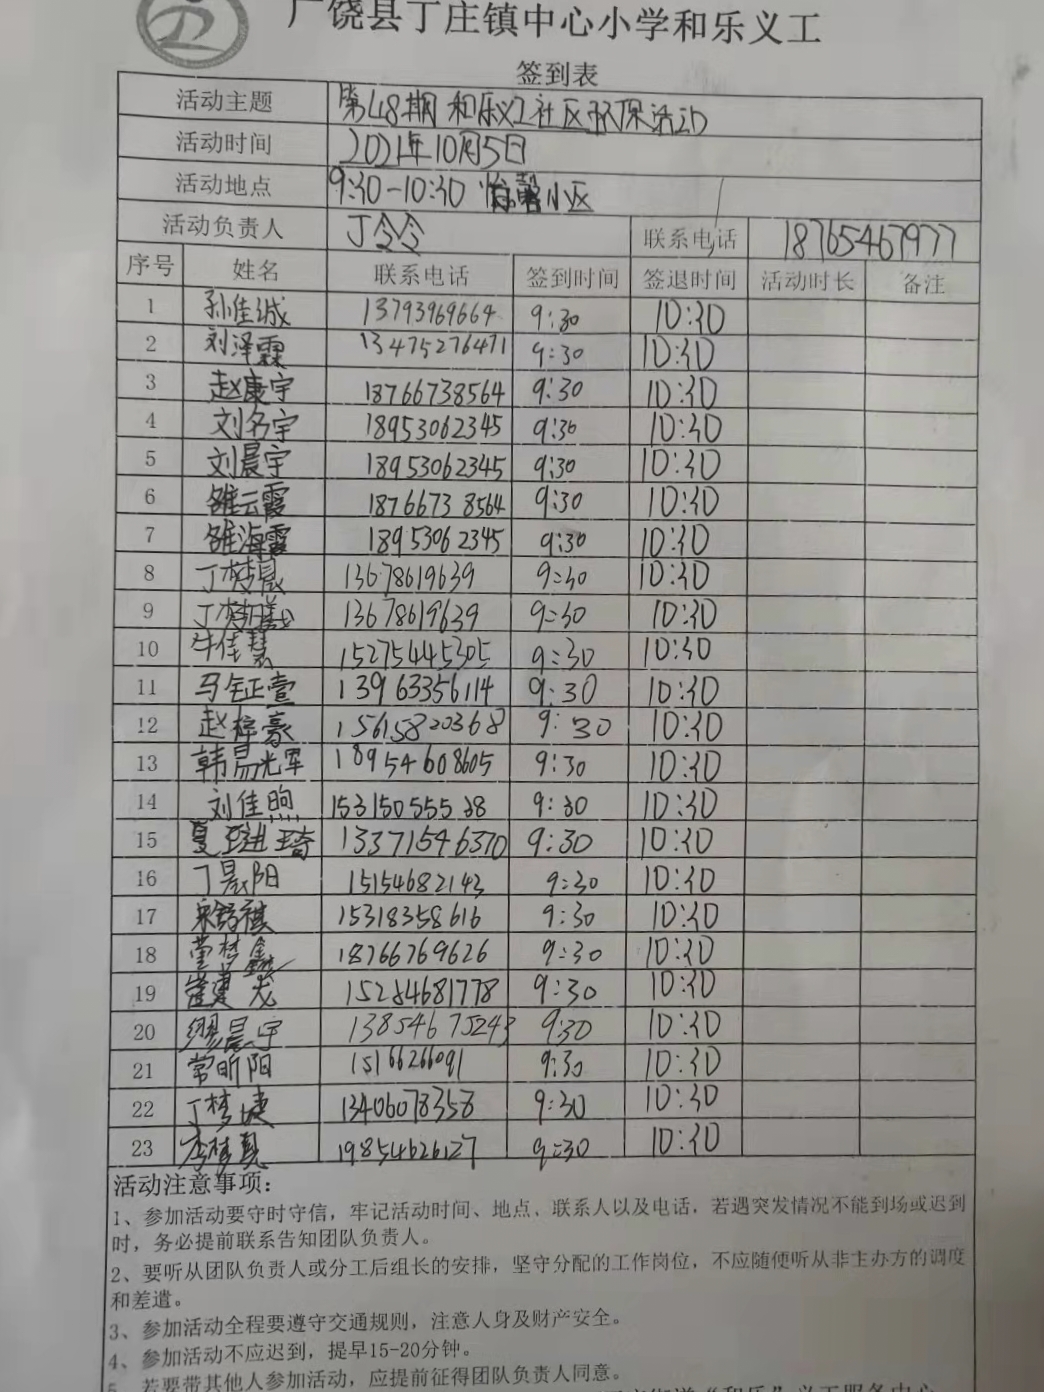 广饶县丁庄镇中心小学和乐义工
签到表
活动主题 第48期 和乐义工社区环保活动
活动时间 2021年10月5日
活动地点 9:30-10:30 怡馨小区
活动负责人 丁令令 联系电话 18765467977
序号 姓名 联系电话 签到时间 签退时间 活动时长 备注
1 孙佳诚 13793969664 9:30 10:30
2 刘泽霖 13475276471 9:30 10:30
3 赵康宇 18766738564 9:30 10:30
4 刘名宇 18953062345 9:30 10:30
5 刘晨宇 18953062345 9:30 10:30
6 雒云霞 18766738564 9:30 10:30
7 雒海霞 18953062345 9:30 10:30
8 丁梓晨 13678619639 9:30 10:30
9 丁 13678619639 9:30 10:30
10 牛佳慧 15275445305 9:30 10:30
11 马钰壹 13963356114 9:30 10:30
12 赵梓豪 15615820368 9:30 10:30
13 韩易光军 18954608605 9:30 10:30
14 刘佳煦 15315055538 9:30 10:30
15 夏琦 13371546370 9:30 10:30
16 丁晨阳 15154682143 9:30 10:30
17 祺 15318358616 9:30 10:30
18 董梦鑫 18766769626 9:30 10:30
19 龙 15284681778 9:30 10:30
20 缪晨宇 13854675243 9:30 10:30
21 常昕阳 15166266091 9:30 10:30
22 丁梦婕 13406078358 9:30 10:30
23 李梦 19854626127 9:30 10:30
活动注意事项：
1、参加活动要守时守信，牢记活动时间、地点、联系人以及电话，若遇突发情况不能到场或迟到
时，务必提前联系告知团队负责人。
2、要听从团队负责人或分工后组长的安排，坚守分配的工作岗位，不应随便听从非主办方的调度
和差遣。
3、参加活动全程要遵守交通规则，注意人身及财产安全。
4、参加活动不应迟到，提早15-20分钟。
5、若要带其他人参加活动，应提前征得团队负责人同意。
"和乐"义工服务中心